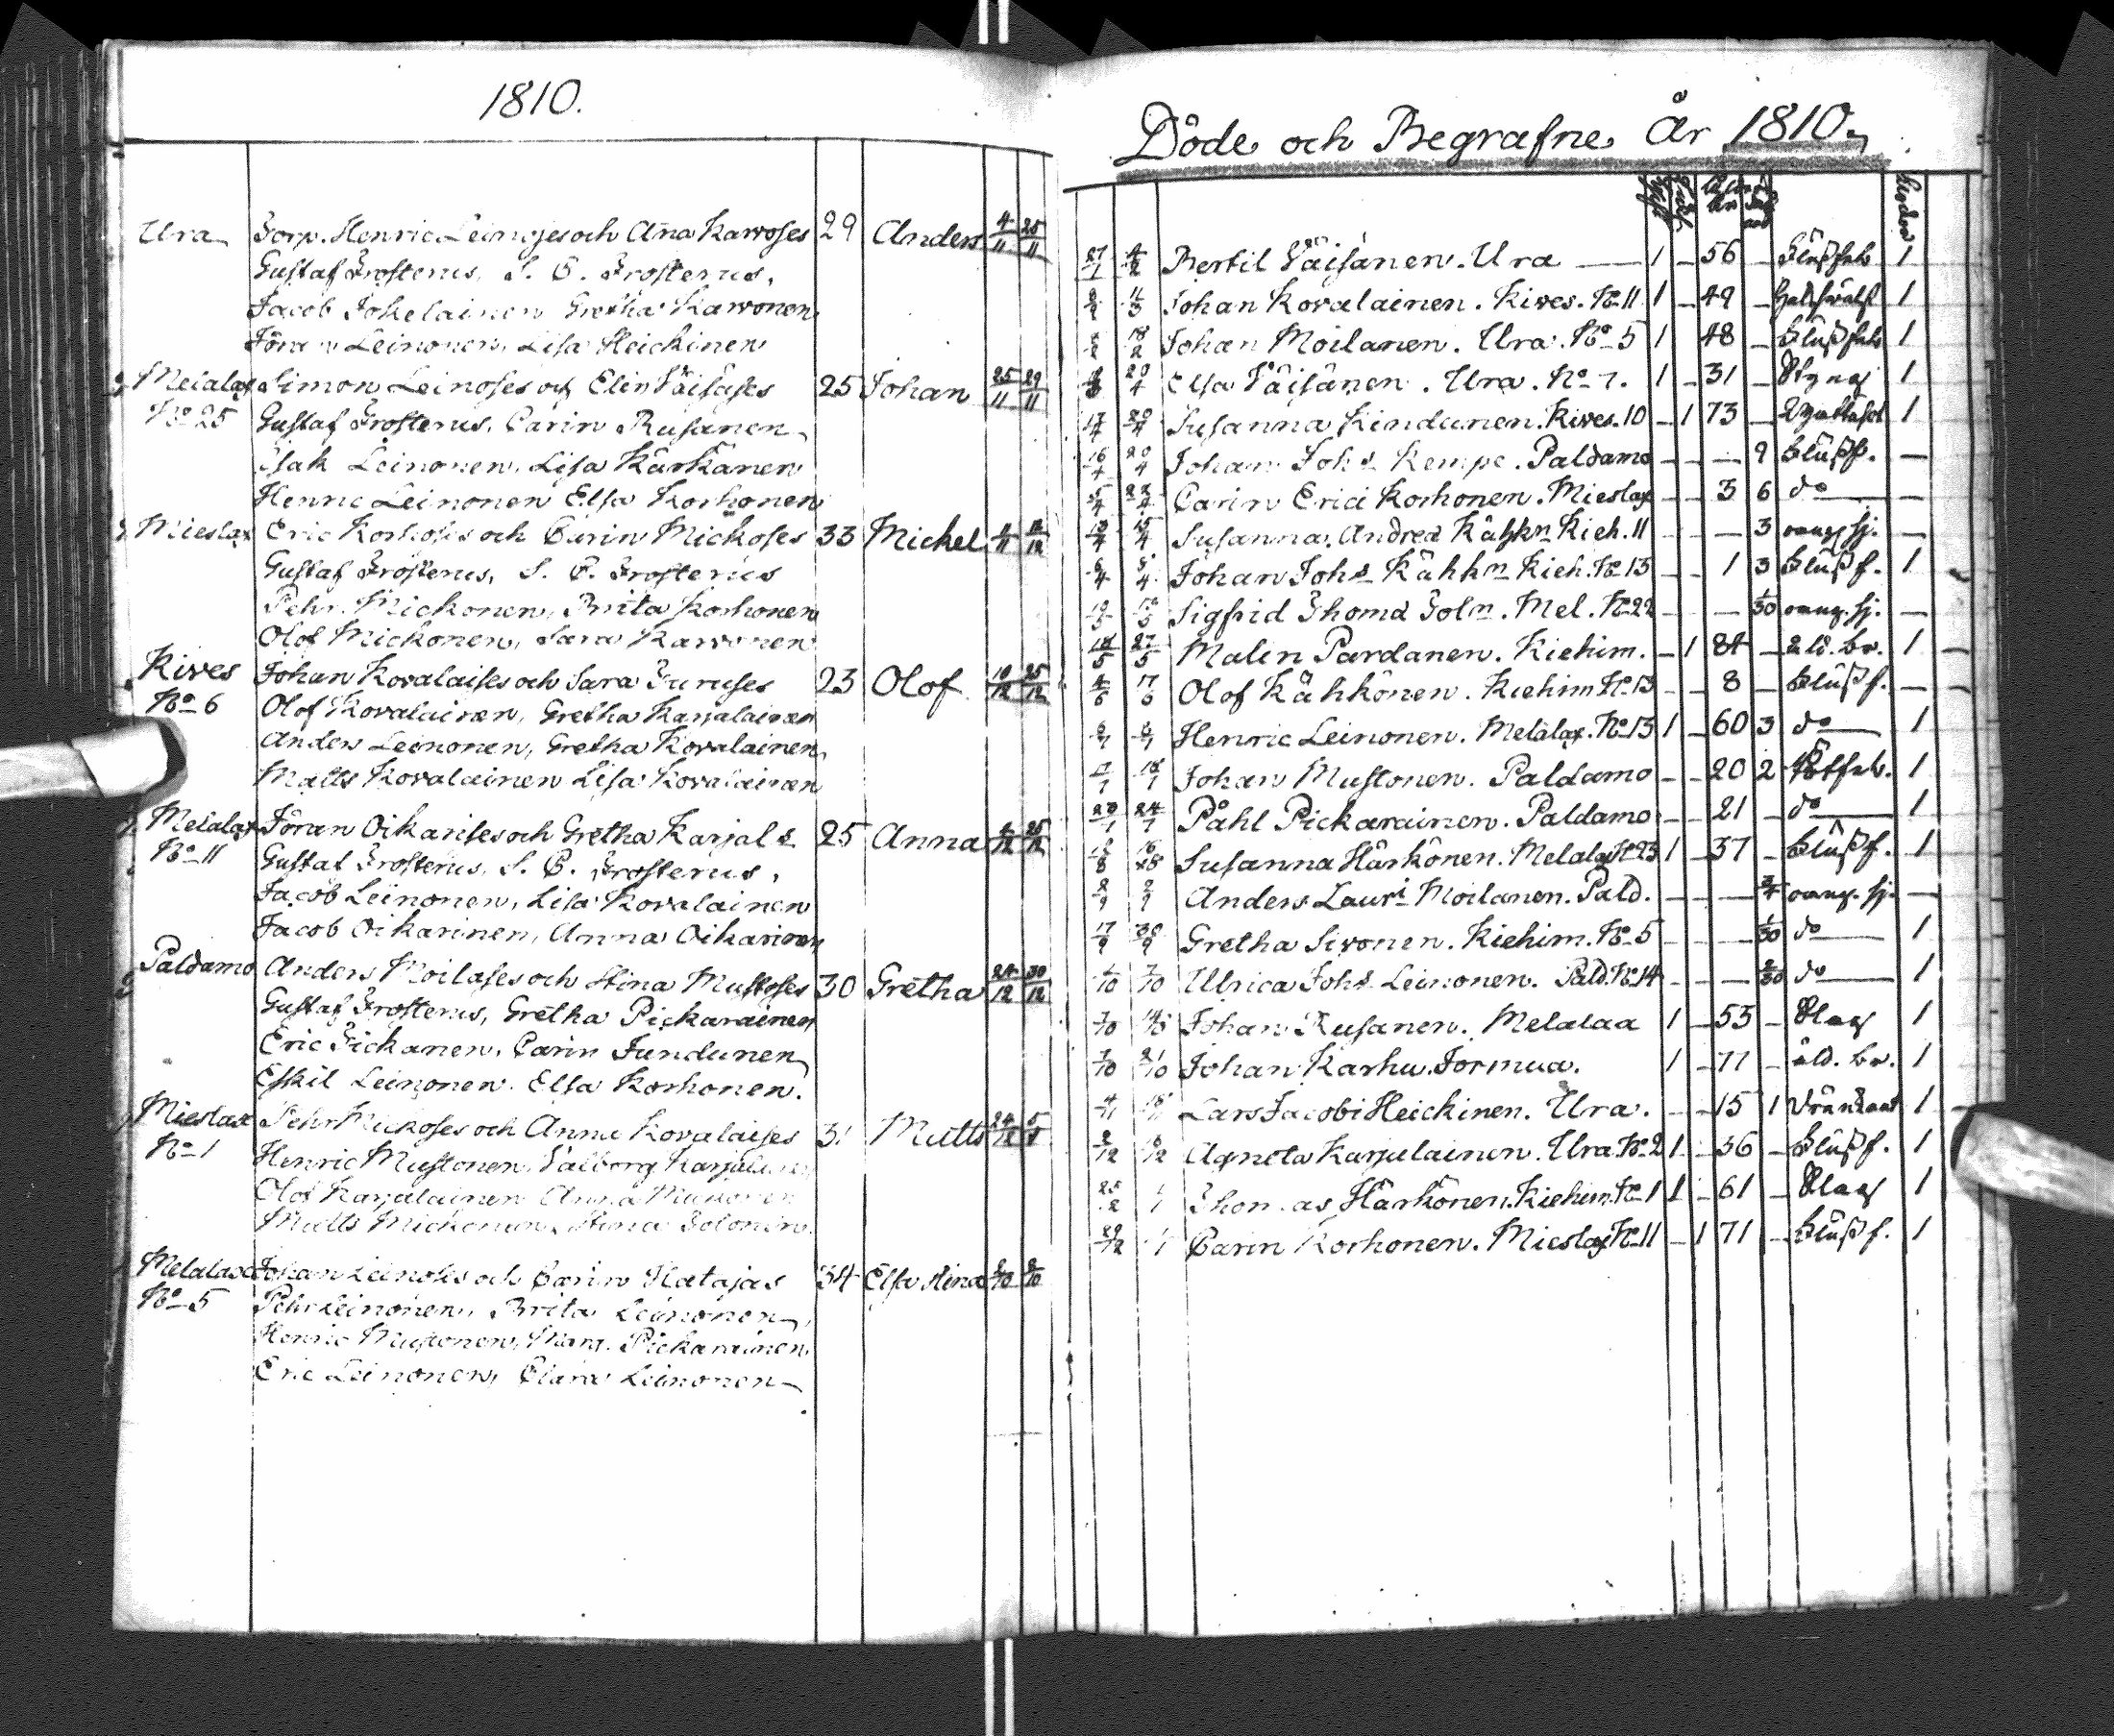 1810.
Ura Torp. Henric Leinoses och Aña Karvoses 29 Anders 4/11 25/11
Gustaf Frosterus, S. C. Frosterus,
Jacob Jokelainen Gretha Karvonen
Jöran Leinonen, Lisa Heickinen
Melalax Simon Leinoses och Elin Väisäses 25 Johan 25/11 29/11
No 25 Gustaf Frosterus, Carin Rusanen
Isak Leinonen, Lisa Kärkänen
Henric Leinonen Elsa Korhonen
Mieslax Eric Korhoses och Carin Mickoses 33 Michel
Gustaf Frosterus, S. C. Frosterus
Pehr Mickonen, Brita Korhonen
Olof Mickonen, Sara Karvonen
Kives Johan Kovalaises och Sara Juruses 23 Olof 25/12
No 6 Olof Kovalainen, Gretha Karjalainen
Anders Leinonen, Gretha Kovalainen,
Matts Kovalainen Lisa Kovalainen
Melalax Jöran Oikarises och Gretha Karjal s. 25 Anna
No 11 Gustaf Frosterus, S. C. Frosterus,
Jacob Leinonen, Lisa Kovalainen
Jacob Oikarinen, Anna Oikarinen
Paldamo Anders Moilases och Stina Mustoses 30 Gretha 24/12 30/12
Gustaf Frosterus, Gretha Pickarainen
Eric Pickanen, Carin Jundunen
Eskil Leinonen. Elsa Korhonen.
Mieslax Pehr Mickoses och Anna Kovalaises 31 Matts
No 1 Henric Mustonen, Valborg
Olof Karjalainen Anna Mustonen
Matts Mickonen, Stina Tolonen.
Melalax Johan Leinoses och Carin Hatajas 34 Elsa Stina
No 5 Pehr Leinonen, Brita Leinonen,
Henric Mustonen, Marg. Pickarainen,
Eric Leinonen, Clara Leinonen
Döde och Begrafne År 1810.
27/1 4/2 Bertil Väisänen. Ura 1 56 1
11/3 Johan Kovalainen. Kives. No 11 1 49 1
18/2 Johan Moilanen. Ura. No 5 1 48 1
Elsa Väisänen. Ura. No 7. 1 31 1
17/4 Susanna Kindunen. Kives. 10 1 73 1
Johan Johs Kempe. Paldamo 9
Carin Erici Korhonen. Mieslax 3 6 do
Susanna Andreæ Kähkn Kieh. 11 3
Johan Johs Kähkn Kieh. No 13 1 3 1
Sigfrid Thomæ Toln. Mel. No 22 1/30
27/5 Malin Pardanen. Kiehim. 1 84 1
Olof Kähkönen. Kiehim No 13 8
Henric Leinonen. Melalax. No 13 1 60 3 do 1
Johan Mustonen. Paldamo 20 2 1
24/7 Påhl Pickarainen. Paldamo 21 do 1
Susanna Härkönen. Melalax No 23 1 37 1
Anders Lauri Moilanen. Pald.
17/9 30/9 Gretha Sivonen. Kiehim. No 5 1/30 do 1
7/10 Ulrica Johs Leinonen. Pald. No 14 2/30 do 1
7/10 14/10 Johan Rusanen. Melalaa 1 53 Slag 1
7/10 21/10 Johan Karhu. Jormua. 1 77 åld. br. 1
Lars Jacobi Heickinen. Ura. 15 1 1
Agneta Karjalainen. Ura. No 2 1 36 1
Thomas Härkönen. Kiehim. No 1 1 61 Slag 1
29/12 Carin Korhonen. Mieslax No 11 1 71 1